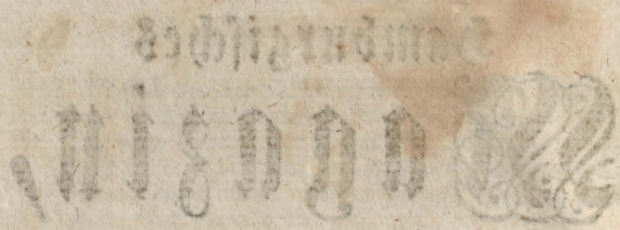 Hamburgisches
Magazin,